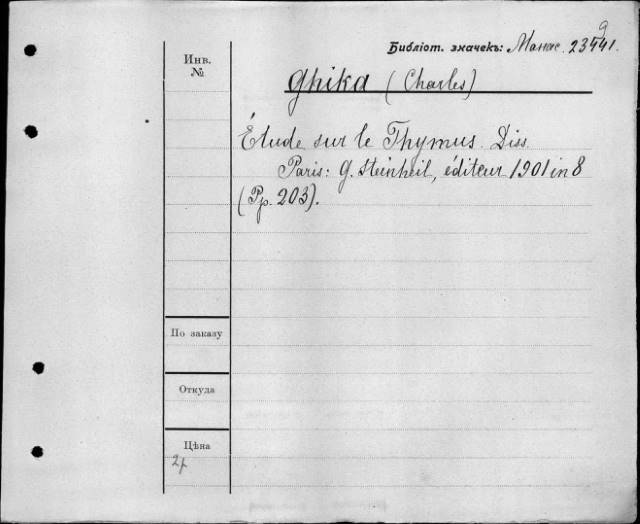 Библіот. значекъ: Манас. 23441.
9
Инв.
№
Ghika (Charles)
Étude sur le Thymus. Diss.
Paris: G. Steinheil, éditeur 1901 in 8
(Pp. 203).
По заказу
Откуда
Цѣна
2р